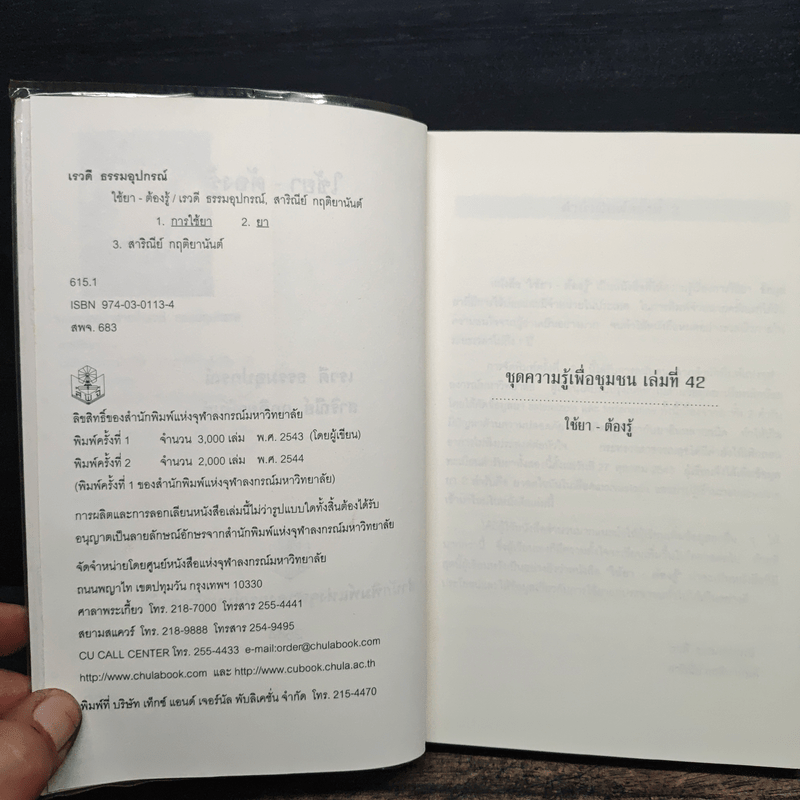 เรวดี ธรรมอุปกรณ์
ใช้ยา - ต้องรู้ / เรวดี ธรรมอุปกรณ์, สาริณีย์ กฤติยานันต์
1. การใช้ยา 2. ยา
3. สาริณีย์ กฤติยานันต์
615.1
ISBN 974-03-0113-4
สพจ. 683
ลิขสิทธิ์ของสำนักพิมพ์แห่งจุฬาลงกรณ์มหาวิทยาลัย
พิมพ์ครั้งที่ 1 จำนวน 3,000 เล่ม พ.ศ. 2543 (โดยผู้เขียน)
พิมพ์ครั้งที่ 2 จำนวน 2,000 เล่ม พ.ศ. 2544
(พิมพ์ครั้งที่ 1 ของสำนักพิมพ์แห่งจุฬาลงกรณ์มหาวิทยาลัย)
การผลิตและการลอกเลียนหนังสือเล่มนี้ไม่ว่ารูปแบบใดทั้งสิ้นต้องได้รับ
อนุญาตเป็นลายลักษณ์อักษรจากสำนักพิมพ์แห่งจุฬาลงกรณ์มหาวิทยาลัย
จัดจำหน่ายโดยศูนย์หนังสือแห่งจุฬาลงกรณ์มหาวิทยาลัย
ถนนพญาไท เขตปทุมวัน กรุงเทพฯ 10330
ศาลาพระเกี้ยว โทร. 218-7000 โทรสาร 255-4441
สยามสแควร์ โทร. 218-9888 โทรสาร 254-9495
CU CALL CENTER โทร. 255-4433 e-mail:order@chulabook.com
http://www.chulabook.com และ http://www.cubook.chula.ac.th
พิมพ์ที่ บริษัท เท็กซ์ แอนด์ เจอร์นัล พับลิเคชั่น จำกัด โทร. 215-4470
ชุดความรู้เพื่อชุมชน เล่มที่ 42
ใช้ยา - ต้องรู้